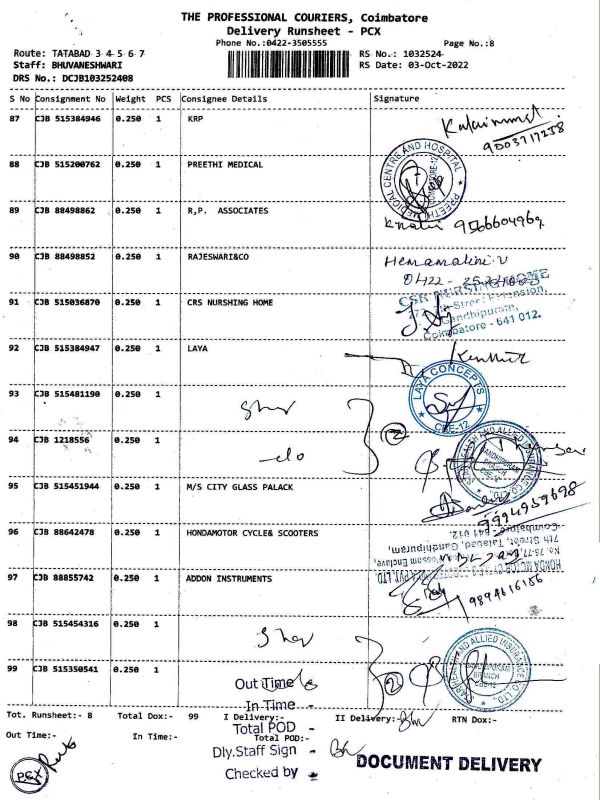 THE PROFESSIONAL COURIERS, Coimbatore
Delivery Runsheet - PCX
Phone No.:0422-3505555 Page No.:8
Route: TATABAD 3 4 5 6 7 RS No.: 1032524
Staff: BHUVANESHWARI RS Date: 03-Oct-2022
DRS No.: DCJB103252408
S No Consignment No Weight PCS Consignee Details Signature
87 CJB 515384946 0.250 1 KRP
9003717258
88 CJB 515200762 0.250 1 PREETHI MEDICAL
PREETHI MEDICAL CENTRE AND HOSPITAL
89 CJB 88498862 0.250 1 R,P. ASSOCIATES
9566604969
90 CJB 88498852 0.250 1 RAJESWARI&CO Hemamalini.v
0422 -
91 CJB 515036870 0.250 1 CRS NURSHING HOME
CSR NURSING HOME
Gandhipuram,
Coimbatore - 641 012.
92 CJB 515384947 0.250 1 LAYA
LAYA CONCEPTS
CBE-12
93 CJB 515481190 0.250 1
2
94 CJB 1218556 0.250 1
95 CJB 515451944 0.250 1 M/S CITY GLASS PALACK
9994959698
96 CJB 88642478 0.250 1 HONDAMOTOR CYCLE& SCOOTERS
Coimbatore - 641 012.
7th Street, Tatabad, Gandhipuram,
97 CJB 88855742 0.250 1 ADDON INSTRUMENTS
9894616156
98 CJB 515454316 0.250 1
99 CJB 515350541 0.250 1
2
Out Time
In Time -
Tot. Runsheet:- 8 Total Dox:- 99 I Delivery:- II Delivery:- RTN Dox:-
Total POD -
Out Time:- In Time:- Total POD:-
Dly.Staff Sign -
Checked by -
PCX
DOCUMENT DELIVERY